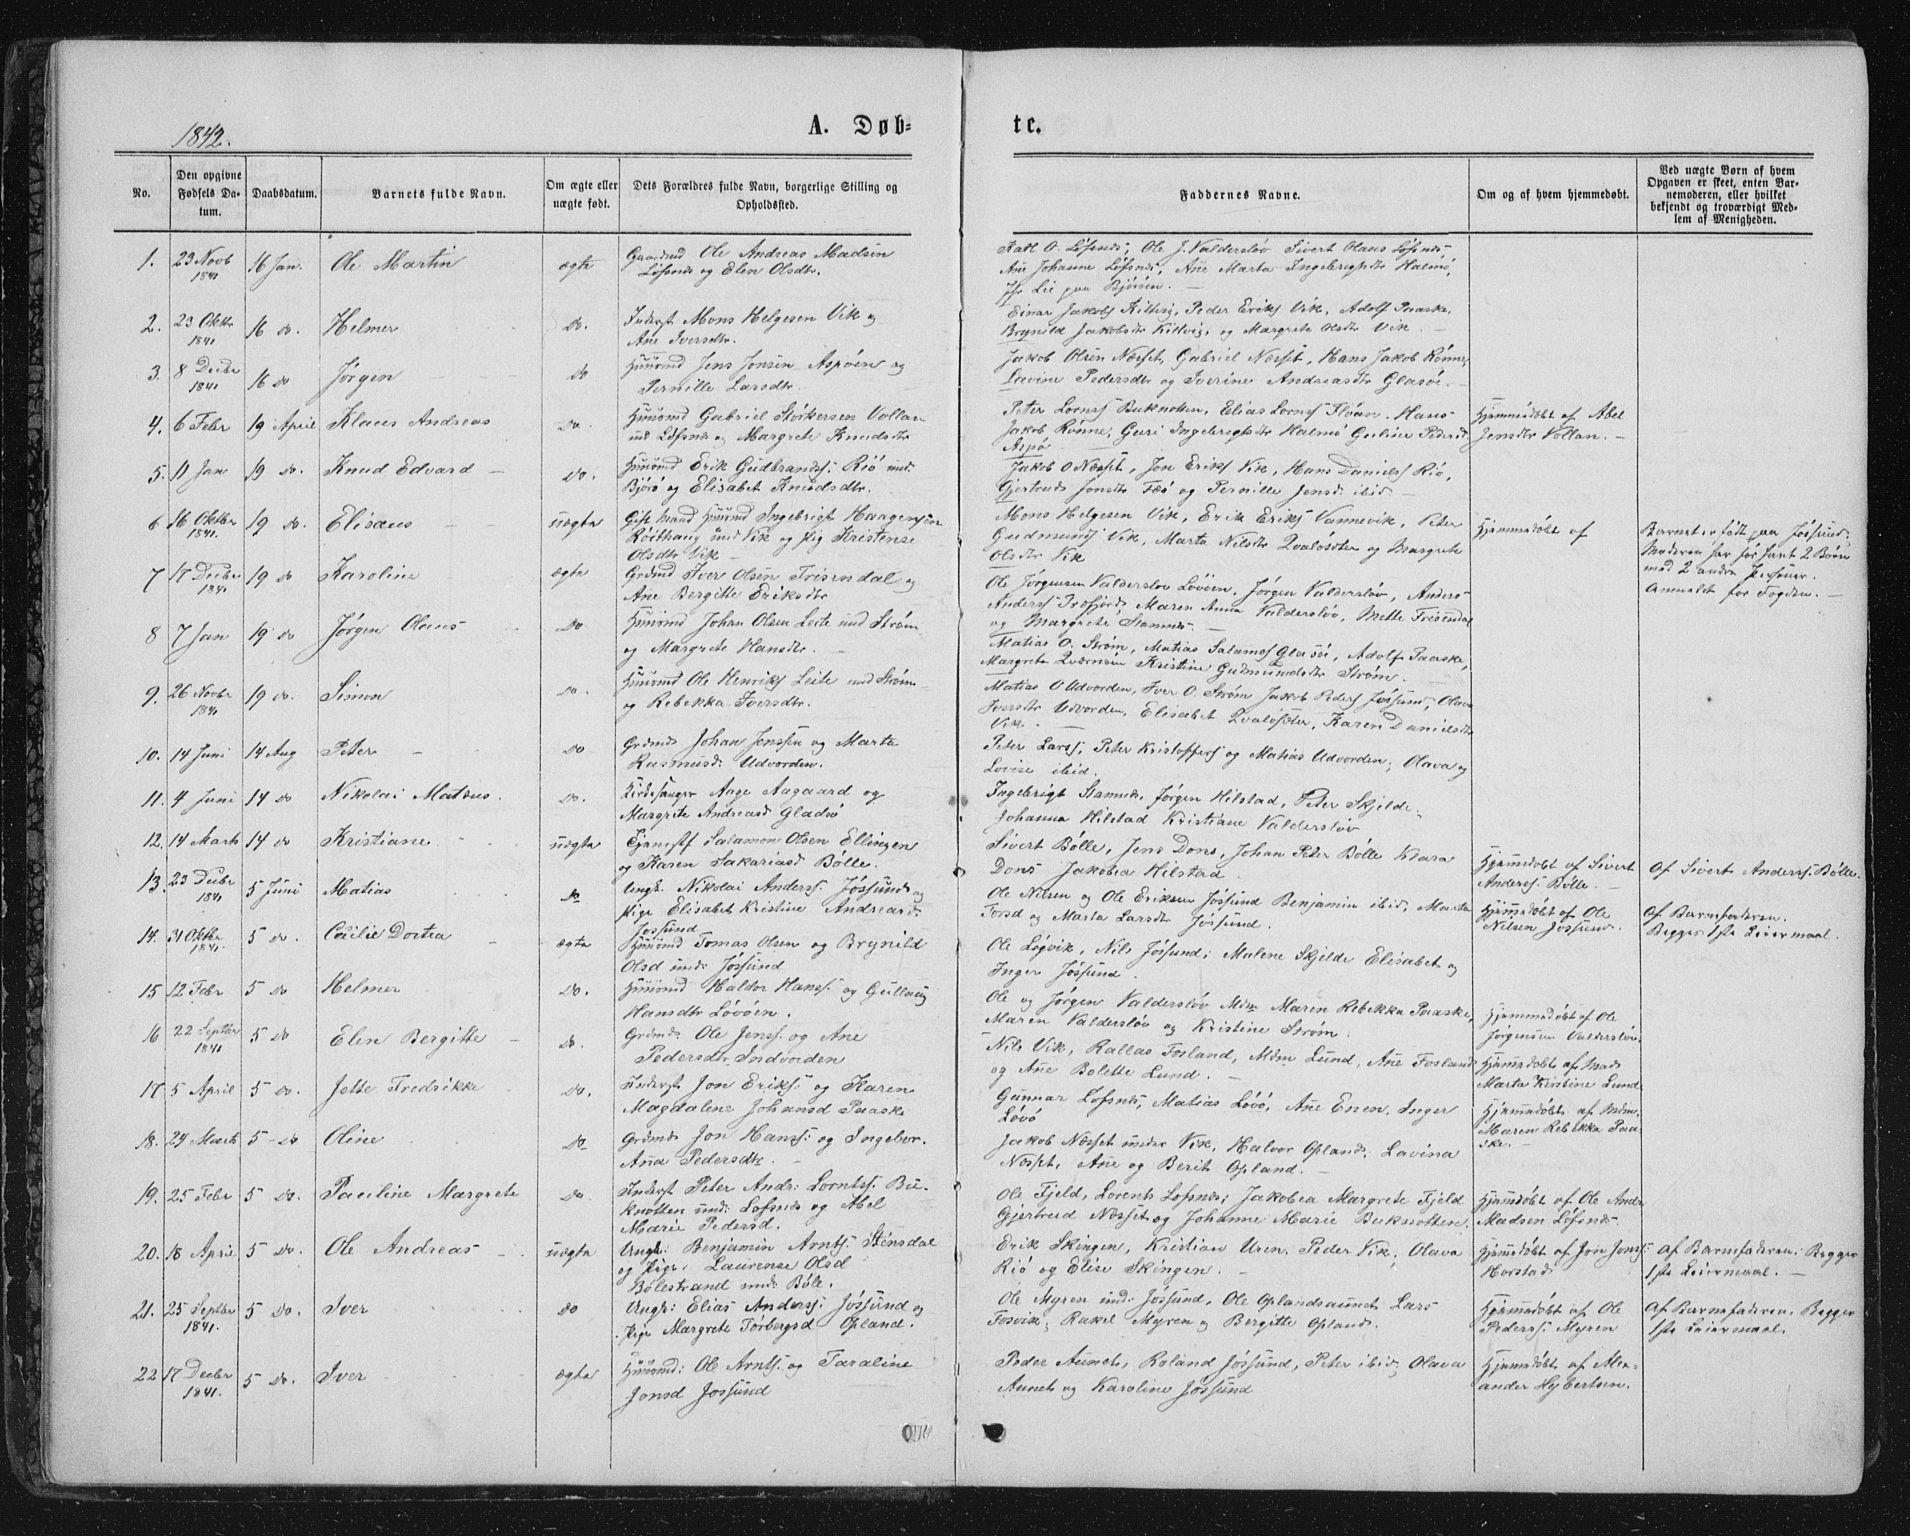 1842.
A. Døb-
te.
No.
Den opgivne Fødsels Da-tum.
Daabsdatum.
Barnets fulde Navn.
Om ægte eller uægte født.
Dets Forældres fulde Navn, borgerlige Stilling og Opholdssted.
Faddernes Navne.
Om og af hvem hjemmedøbt.
Ved uægte Børn af hvem Opgaven er skeet, enten Bar-nemoderen, eller hvilket bekjendt og troværdigt Med-lem af Menigheden.
1. 23 Novb 1841 16 Jan. Ole Martin ægte Ole Andreas Madsen
Løfsnæs og Elen Olsdtr.
Ole J. Valdersløv Sivert Olaus Løfsnæs
Ane Johann Løfsnæs, Ane Marta Ingebrigtsdtr Halmø,
Lie paa Bjørøen.
2. 23 Oktbr 1841 16 do. Helmer do. Inderst Mons Helgesen Vik og
Ane Iversdtr.
Einar Jakobs Kiltvig, Peder Eriks Vik, Adolf Paaske,
Brynild Jakobsdtr Kiltvig, og Margrete Olsdtr Vik.
3. 8 Decbr 1841 16 do Jørgen do Huusmd Jens Jonsen Aspøen og
Pernille Larsdtr.
Jakob Olsen Næsset, Gabriel Næsset, Hans Jakob Rønne,
Lavine Pedersdtr og Iverine Andreasdtr Glasøe.
4. 6 Febr 19 April Klaus Andreas do. Huusmd Gabriel Størkersen Vollan
und Løfsnæs og Margrete Knudsdtr
Peter Lornsf Buknotten, Elias Lornsf Floan, Hans
Jakob Rønne, Guri Ingebrigtsdtr Halmø Guline Pedersd
Aspø
Hjemmedøbt af Abel
Jensdtr Vollan.
5. 11 Jan 19 do. Knud Edvard do. Huusmd Erik Gudbrandsf. Riø und
Bjørø og Elisabet Knudsdtr.
Jakob O Næsset, Jon Eriks Vik, Hans Daniels Riø,
Gjertrud Jonsdtr Fæø og Pernille Jensd. ibid
6 16 Oktbr 1841. 19 do. Elisæus uægte Gift Mand Huusmd Ingebrigt Haagensen
Røithaug und Vik og Pig Kristense
Olsdtr Vik
Mons Helgesen Vik, Erik Eriks Vannevik, Peter
Gudmunds Vik, Marta Nilsdtr Qvaløsæter og Margrete
Olsdtr Vik
Hjemmedøbt af
Barnet er født paa Jøssund.
Moderen har før havt 2 Børn
med 2 andre Personer.
Anmeldt for Fogden.
7 17 Decbr 1841 19 do Karoline ægte Grdmd Iver Olsen Frisendal og
Ane Bergitte Eriksdtr
Ole Jørgensen Valdersløv Løvøen, Jørgen Valdersløv, Anders
Maren Anna Valdersløv, Mette Frisendal
og Margrete Stamnes.
8 7 Jan 19 do Jørgen Olaus do Huusmd Johan Olsen Leite und Strøm
og Margrete Hansdtr.
Matias O. Strøm, Matias Salamonsf Glasøe, Adolf Paaske,
Margrete Kristine Gudmundsdtr Strøm.
9. 26 Novbr 1841 19 do. Simon do. Huusmd Ole Henriks Leite und Strøm
og Rebekka Iversdtr.
Matias O Udvorden, Iver O. Strøm Jakob Peders Jøssund, Olava
Iversdtr Udvorden, Elisabet Qvaløsæter, Karen Danielsdtr
Vik.
10. 14 Juni 14 Aug Peter do Grdmd Johan Jenssen og Marta
Rasmusd. Udvorden.
Peter Larsf, Peter Kristoffersf og Matias Udvorden, Olava og
Lovise ibid.
11. 4 Juni 14 do Nikolai Matæus. do. Kirkesanger Aage Aagaard og
Margrete Andreasd Gladsø
Ingebrigt Stamnes, Jørgen Hilstad, Peter Skjelde,
Johanna Hilstad Kristiane Valdersløv
12. 14 Marts 14 do Kristiane uægte Salamon Olsen Ellingen
og Karen Sakariasd Bølle.
Sivert Bølle, Jens Dons, Johan Peter Bølle Klara
Dons Jakobea Hilstad.
Hjemmedøbt af Sivert
Anders. Bølle.
Af Sivert Anders. Bølle.
13. 23 Decbr 1841 5 Juni Matias do Ungk. Nikolai Anders. Jøssund og
Pige Elisabet Kristine Andreasd.
Jøssund
Ole Nilsen og Ole Eriksen Jøssund Benjamin ibid, Marta
Forsd og Marta Larsdtr Jøssund.
Hjemmedøbt af Ole
Nilsen Jøssund.
Af Barnefaderen.
Begges 1ste Leiermaal.
14. 31 Oktbr 1841. 5 do. Cecilie Dortea ægte Huusmd Tomas Olsen og Brynild
Olsd und. Jøssund
Ole Løgvik, Nils Jøssund, Malene Skjelde Elisabet og
Inger Jøssund.
15 12 Febr 5 do Helmer do. Huusmd Haldor Hans. og Gullaug
Hansdtr Løvøen.
Ole og Jørgen Valdersløv Mdm Maren Rebekka Paaske,
Maren Valdersløv og Kristine Strøm.
Hjemmedøbt af Ole
Jørgensen Valdersløv.
16 22 Septbr 1841 5 do Elen Bergitte do. Grdmd. Ole Jens. og Ane
Pedersdtr Indvorden
Nils Vik, Rallas Fosland, Mdm Lund, Ane Fosland
og Ane Bolette Lund.
Hjemmedøbt af Mad
Marta Kristine Lund
17 5 April 5 do. Jette Fredrikke do. Inderst Jon Eriks. og Karen
Magdalene Johansd Paaske
Gunnar Løfsnes, Matias Løvø, Ane Enen, Inger
Løvø
Hjemmedøbt af Mdm.
Maren Rebekka Paa-
ske.
18. 24 Marts 5 do Oline do Grdmd Jon Hans. og Ingebor.
Ana Pedersdtr.
Jakob Næsset under Vik, Halvor Opland, Lavina
Næsset, Ane og Berit Opland.
19. 25 Febr 5 do. Pauline Margrete do. Inderst Peter Andr: Lorntsf. Bu-
knotten und: Løfsnes og Abel
Marie Pedersd.
Ole Fjeld, Lorents Løfsnes, Jakobea Margrete Fjeld
Gjertrud Næsset og Johanne Marie Buknotten.
Hjemmedøbt af Ole Andr.
Madsen Løfsnes.
20. 18 April 5 do. Ole Andreas uægte Ungk: Benjamin Arnts. Stensdal
og Pige. Laurense Olsd
Bølestrand und: Bøle.
Erik Skingen, Kristian Uren, Peder Vik, Olava
Riø og Elise Skingen.
Hjemmedøbt af Jon Jons.
Horstad
Af Barnefaderen. Begges
1ste Leiermaal.
21. 25 Septbr 1841. 5 do. Iver do Ungk: Elias Anders. Jøssund og
Pige Margrete Torbergsd Opland.
Ole Myren und. Jøssund, Ole Oplandsaunet Lars
Fosvik, Rakel Myren og Bergitte Opland.
Hjemmedøbt af Ole
Peders. Myren
Af Barnefaderen. Begges
1ste Leiermaal.
22 17 Decbr 1841. 5 do. Iver ægte Huusmd: Ole Arnts. og Taraline
Jonsd Jøssund
Peder Aunet, Roland Jøssund, Peter ibid, Olava
Aunet og Karoline Jøssund
Hjemmedøbt af Alex-
ander Hejbertsen.